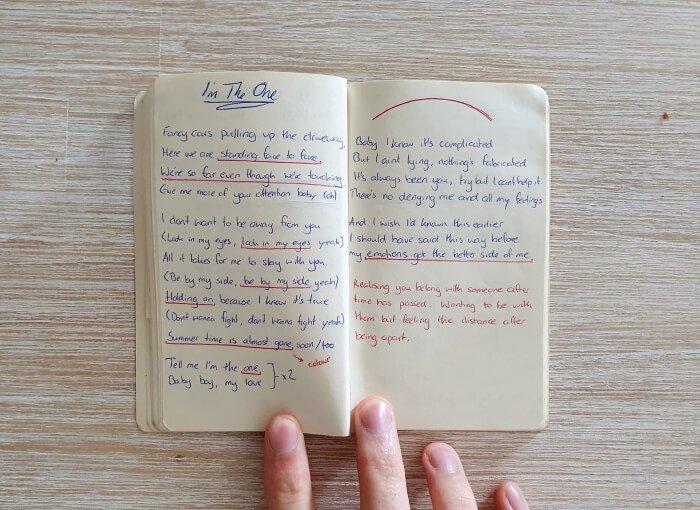 I'm The One
Fancy cars pulling up the driveway,
Here we are standing face to face,
We're so far even though we're touching
Give me more of your attention baby (oh)
I don't want to be away from you
(Look in my eyes, look in my eyes yeah)
All it takes for me to stay with you
(Be by my side, be by my side yeah)
Holding on because I know it's true
(Dont wanna fight, don't wanna fight yeah)
Summer time is almost gone soon/too
colour
Tell me I'm the one,
Baby boy, my love
x2
Baby I know it's complicated
But I aint lying, nothing's fabricated
It's always been you, try but I cant help it.
There's no denying me and all my feelings
And I wish I'd known this earlier
I should have said this way before
my emotions got the better side of me,
Realising you belong with someone after
time has passed. Wanting to be with
them but feeling the distance after
being apart.